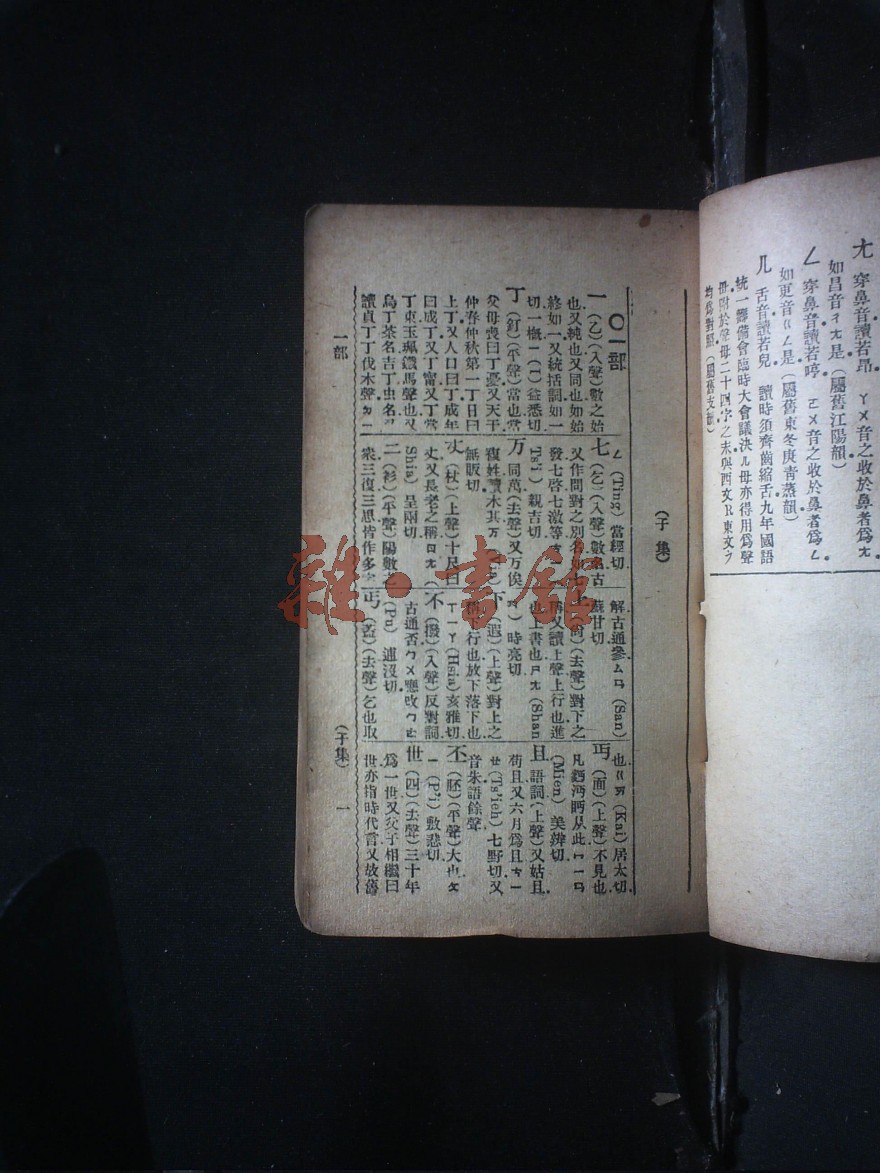 尢 穿鼻音讀若昂 ㄚㄨ音之收於鼻者爲尢
如昌音ㄔ尢是(屬舊江陽韻)
ㄥ 穿鼻音讀若哼 ㄛㄨ音之收於鼻者爲ㄥ
如更音ㄍㄥ是(屬舊東冬庚靑蒸韻)
ㄦ 舌音讀若兒 讀時須齊齒縮舌九年國語
統一籌備會臨時大會議決ㄦ母亦得用爲聲
母附於聲母二十四字之末與西文R東文ラ
均爲對照(屬舊支韻)
(子集)
〇一部
一(乙)(入聲)數之始
也又純也又同也如始
終如一又統括詞如一
切一槪一(I)益悉切
丁(釘)(平聲)當也當
父母喪曰丁憂又天干
仲春仲秋第一丁日曰
上丁又人口曰丁成年
曰成丁又丁甯又丁當
丁東玉珮鐵馬聲也又
烏丁茶名吉丁虫名又
讀貞丁丁伐木聲ㄉㄧ
ㄥ(Ting)當經切
七(乞)(入聲)數名古
又作問對之別名如七
發七啓七激等
Ts'i)親吉切
万 同萬(去聲)又万俟
複姓讀木其万
無販切
丈(杖)(上聲)十尺曰
丈又長老之稱ㄓ尢(
Shia)呈兩切
三(衫)(平聲)陽數
衆三復三思皆作多
解古通參ㄙㄢ(San)
蘇甘切
(尙)(去聲)對下之
稱又讀上聲上行也進
也上書也ㄕ尢(Shan
時亮切
下(遐)(上聲)對上之
稱下行也放下落下也
ㄒㄧㄚ(Hsia)亥雅切
不(撥)(入聲)反對詞
古通否ㄅㄨ應改ㄅㄜ
(Pu)逋沒切
丐(蓋)(去聲)乞也取
也ㄍㄞ(Kai)居太切
丏(面)(上聲)不見也
凡麪沔眄从此ㄇㄧㄢ
(Mien)美辨切
且 語詞(上聲)又姑且
苟且又六月爲且ㄘㄧ
ㄝ(Ts'ieh)七野切又
音朱語餘聲
丕(胚)(平聲)大也ㄆ
ㄧ(P'i)敷悲切
世(四)(去聲)三十年
爲一世又父子相繼曰
世亦指時代言又故舊
一部
(子集)
一
雜·書館